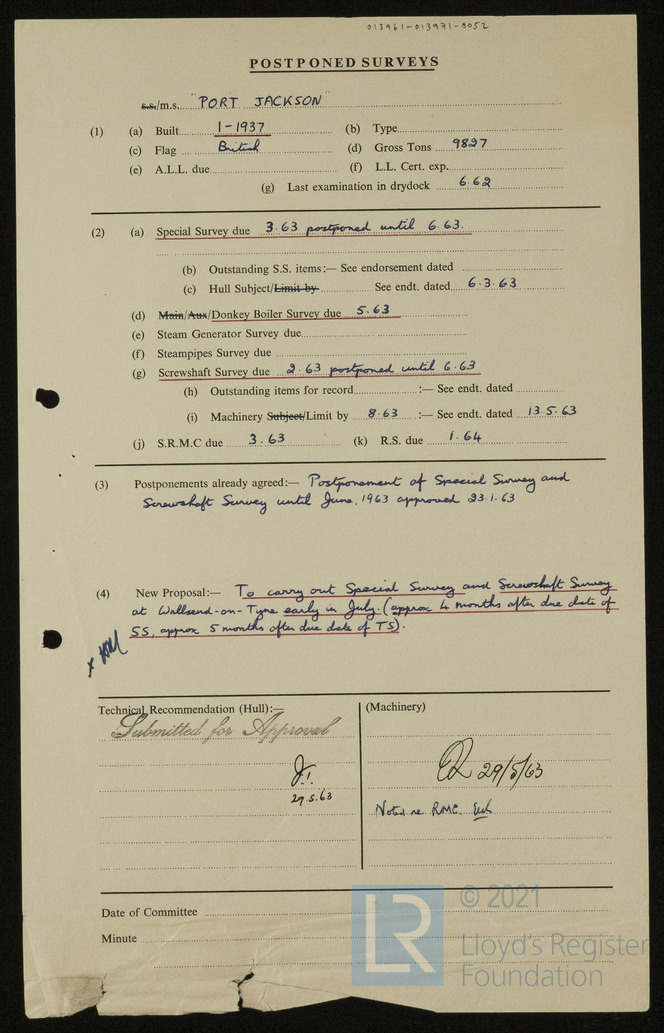 013961-013971-0052
POSTPONED SURVEYS
s.s./m.s. "PORT JACKSON"
(1) (a) Built 1-1937 (b) Type
(c) Flag British (d) Gross Tons 9827
(e) A.L.L. due (f) L.L. Cert. exp.
(g) Last examination in drydock 6.62
(2) (a) Special Survey due 3.63 postponed until 6.63.
(b) Outstanding S.S. items:— See endorsement dated
(c) Hull Subject/Limit by See endt. dated 6.3.63
(d) Main/Aux/Donkey Boiler Survey due 5.63
(e) Steam Generator Survey due
(f) Steampipes Survey due
(g) Screwshaft Survey due 2.63 postponed until 6.63
(h) Outstanding items for record :— See endt. dated
(i) Machinery Subject/Limit by 8.63 :— See endt. dated 13.5.63
(j) S.R.M.C due 3.63 (k) R.S. due 1.64
(3) Postponements already agreed:— Postponement of Special Survey and
Screwshaft Survey until June, 1963 approved 23.1.63
(4) New Proposal:— To carry out Special Survey and Screwshaft Survey
at Wallsend-on-Tyne early in July. (approx 4 months after due date of
SS, approx 5 months after due date of TS).
Technical Recommendation (Hull):— (Machinery)
Submitted for Approval
29/5/63
29.5.63
Noted re RMC.
Date of Committee
Minute
LR © 2021
Lloyd's Register
Foundation